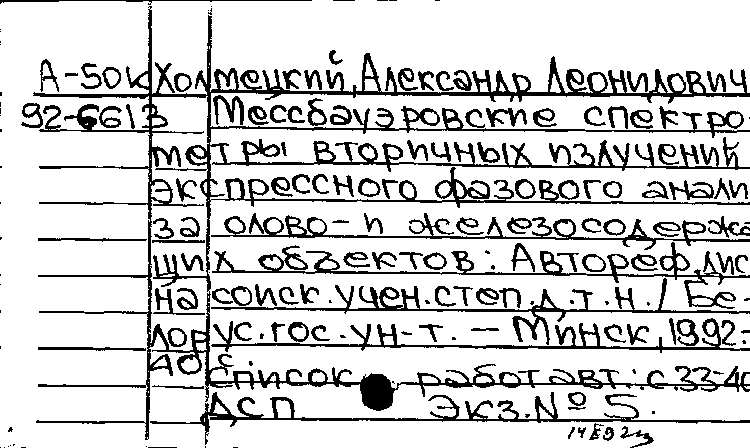 А-50к Холмецкий, Александр Леонидович
92-6613 Мессбауэровские спектро-
метры вторичных излучений
экспрессного фазового анали
за олово- и железосодержа
щих объектов: Автореф. дис
на соиск. учен. степ. д.т.н. / Бе-
лорус. гос. ун-т. — Минск, 1992.-
40 с
Список работ авт.: с.33-40
ДСП Экз. № 5.